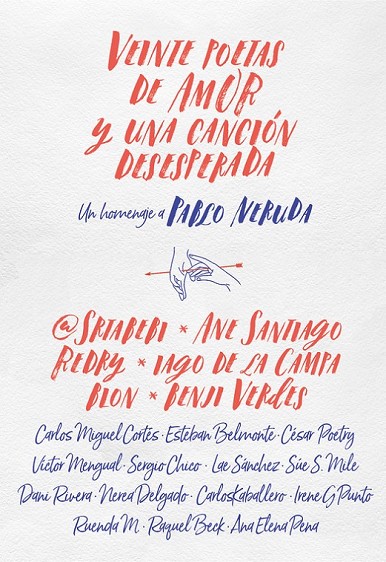 VEINTE POETAS
DE AMOR
Y UNA CANCIÓN
DESESPERADA
Un homenaje a PABLO NERUDA
@SRTABEBI * ANE SANTIAGO
REDRY * IAGO DE LA CAMPA
BLON * BENJI VERDES
Carlos Miguel Cortés · Esteban Belmonte · César Poetry
Víctor Mengual · Sergio Chico · Lae Sánchez · Süe S. Mile
Dani Rivera · Nerea Delgado · CarlosKaballero · Irene G Punto
Ruenda M. · Raquel Beck · Ana Elena Pena